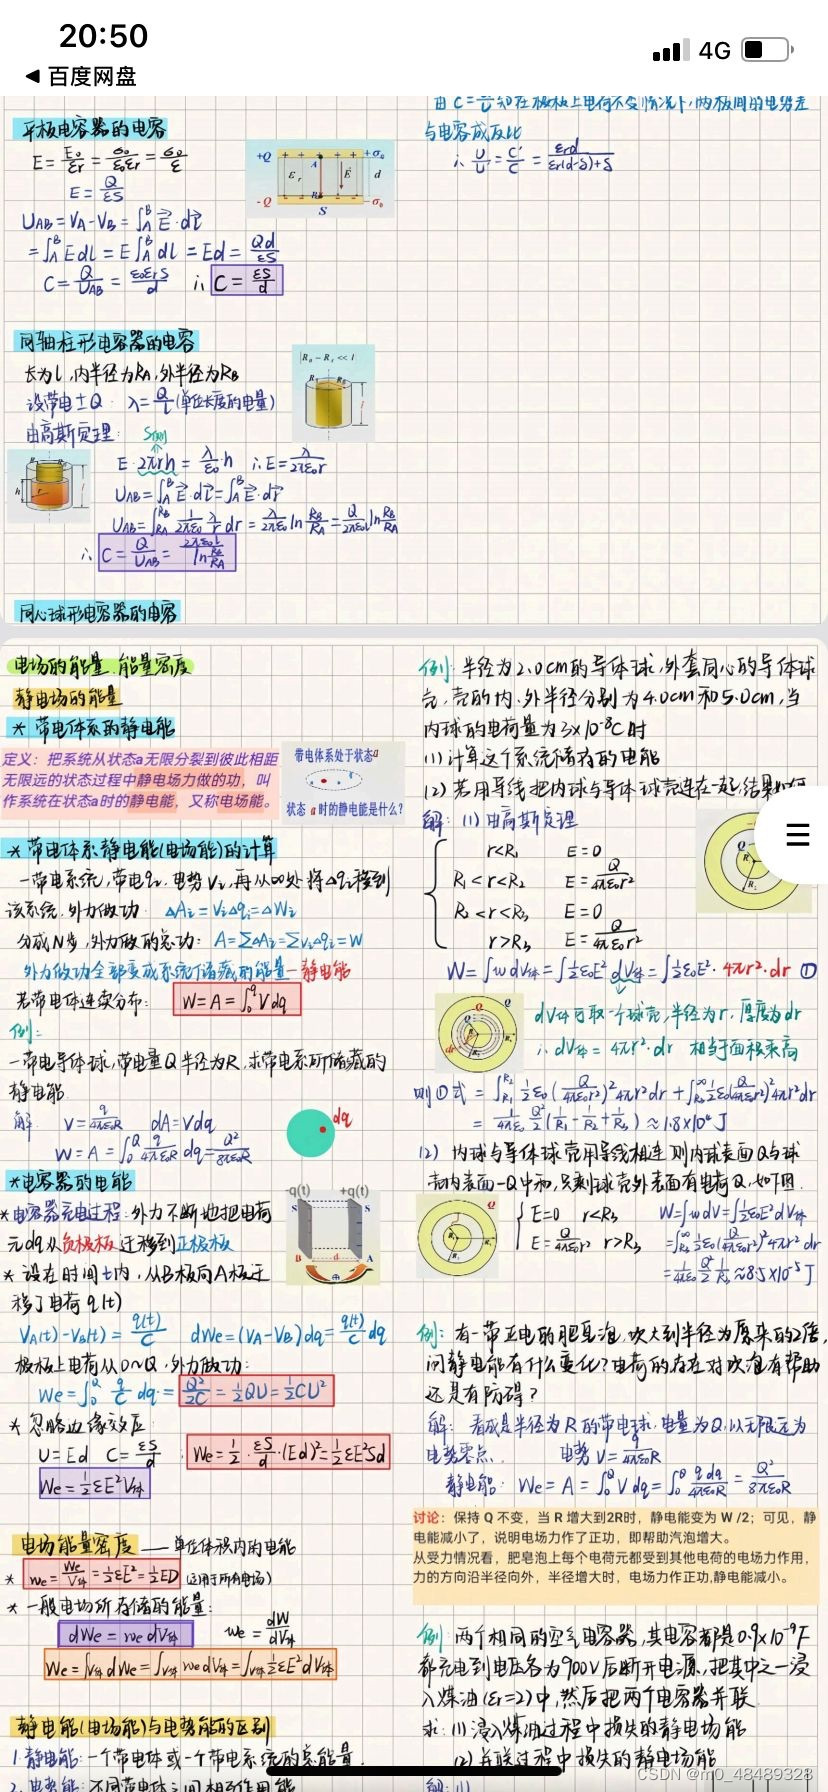 20:50
4G
◀ 百度网盘
由 C=Q/U 知在极板上电荷不变情况下,两极间的电势差
与电容成反比
∴ U'/U = C/C' = εrd/(εr(d-δ)+δ)
平板电容器的电容
E = E₀/εr = σ₀/ε₀εr = σ₀/ε
E = Q/εS
U_AB = V_A - V_B = ∫_A^B E·dl
= ∫_A^B Edl = E∫_A^B dl = Ed = Qd/εS
C = Q/U_AB = ε₀εrS/d ∴ C = εS/d
+Q + + + + +σ₀
A
εr E d
-Q B -σ₀
S
同轴柱形电容器的电容
长为l,内半径为R_A,外半径为R_B
设带电±Q λ=Q/l (单位长度的电量)
由高斯定理: S侧
E·2πrh = λ/ε₀·h ∴ E = λ/2πε₀r
U_AB = ∫_A^B E·dl = ∫_A^B E·dr
U_AB = ∫_{R_A}^{R_B} 1/2πε₀ λ/r dr = λ/2πε₀ ln R_B/R_A = Q/2πε₀l ln R_B/R_A
∴ C = Q/U_AB = 2πε₀l/ln R_B/R_A
同心球形电容器的电容
电场的能量、能量密度
静电场的能量
* 带电体系的静电能
定义:把系统从状态a无限分裂到彼此相距
无限远的状态过程中静电场力做的功,叫
作系统在状态a时的静电能,又称电场能。
带电体系处于状态a
状态 a 时的静电能是什么?
* 带电体系静电能(电场能)的计算
一带电系统,带电qi,电势Vi,再从∞处将Δqi移到
该系统,外力做功 ΔAi = ViΔqi = ΔWi
分成N步,外力做的总功: A=ΣΔAi=ΣViΔqi=W
外力做功全部变成系统储藏的能量—静电能
若带电体连续分布: W = A = ∫₀^q Vdq
例:
一带电导体球,带电量Q半径为R,求带电系所储藏的
静电能
解 V = q/4πε₀R dA = Vdq
W = A = ∫₀^Q q/4πε₀R dq = Q²/8πε₀R
dq
*电容器的电能
*电容器充电过程:外力不断地把电荷
元dq从负极板迁移到正极板
* 设在时间t内,从B极向A极迁
移了电荷q(t)
-q(t) +q(t)
S S
B d A
V_A(t)-V_B(t) = q(t)/C dWe=(V_A-V_B)dq = q(t)/C dq
极板上电荷从0~Q,外力做功:
We = ∫₀^Q q/C dq = Q²/2C = ½QU = ½CU²
* 忽略边缘效应
U=Ed C=εS/d We = ½·εS/d·(Ed)² = ½εE²Sd
We = ½εE²V体
电场能量密度 —— 单位体积内的电能
* we = We/V体 = ½εE² = ½ED (适用于所有电场)
* 一般电场所存储的能量:
dWe = we dV体 we = dW/dV体
We = ∫V体 dWe = ∫V体 we dV体 = ∫V体 ½εE²dV体
静电能(电场能)与电势能的区别
1.静电能:一个带电体或一个带电系统的总能量.
2.电势能:不同带电体之间相互作用能
例: 半径为2.0cm的导体球,外套同心的导体球
壳,壳的内、外半径分别为4.0cm和5.0cm,当
内球的电荷量为3×10⁻⁸C时
(1)计算这个系统储存的电能
(2)若用导线把内球与导体球壳连在一起,结果如何
解:(1)由高斯定理
r<R₁ E=0
R₁<r<R₂ E = Q/4πε₀r²
R₂<r<R₃ E=0
r>R₃ E = Q/4πε₀r²
☰
W = ∫w dV体 = ∫½ε₀E² dV体 = ∫½ε₀E²·4πr²·dr ①
dV体可取一个球壳,半径为r,厚度为dr
∴ dV体 = 4πr²·dr 相当于面积乘高
则①式 = ∫_{R₁}^{R₂} ½ε₀(Q/4πε₀r²)²4πr²dr + ∫_{R₃}^∞ ½ε₀(Q/4πε₀r²)²4πr²dr
= 1/4πε₀ Q²/2 (1/R₁ - 1/R₂ + 1/R₃) ≈ 1.8×10⁻⁴ J
(2) 内球与导体球壳用导线相连,则内球表面Q与球
壳内表面-Q中和,只剩球壳外表面有电荷Q,如下图
E=0 r<R₃ W=∫wdV=∫½ε₀E²dV体
E = Q/4πε₀r² r>R₃ = ∫_{R₃}^∞ ½ε₀(Q/4πε₀r²)²4πr²dr
= 1/4πε₀ Q²/2 1/R₃ ≈ 8.5×10⁻⁵ J
例: 有一带正电的肥皂泡,吹大到半径为原来的2倍,
问静电能有什么变化?电荷的存在对吹泡有帮助
还是有防碍?
解: 看成是半径为R的带电球,电量为Q,以无限远为
电势零点. 电势 V = q/4πε₀R
静电能: We = A = ∫₀^Q Vdq = ∫₀^Q qdq/4πε₀R = Q²/8πε₀R
讨论:保持 Q 不变,当 R 增大到2R时,静电能变为 W /2;可见,静
电能减小了,说明电场力作了正功,即帮助汽泡增大。
从受力情况看,肥皂泡上每个电荷元都受到其他电荷的电场力作用,
力的方向沿半径向外,半径增大时,电场力作正功,静电能减小。
例: 两个相同的空气电容器,其电容都是0.9×10⁻⁹F
都充电到电压各为900V后断开电源,把其中之一浸
入煤油(εr=2)中,然后把两个电容器并联.
求:(1)浸入煤油过程中损失的静电场能
(2)并联过程中损失的静电场能
解:(1)
CSDN @m0_48489328